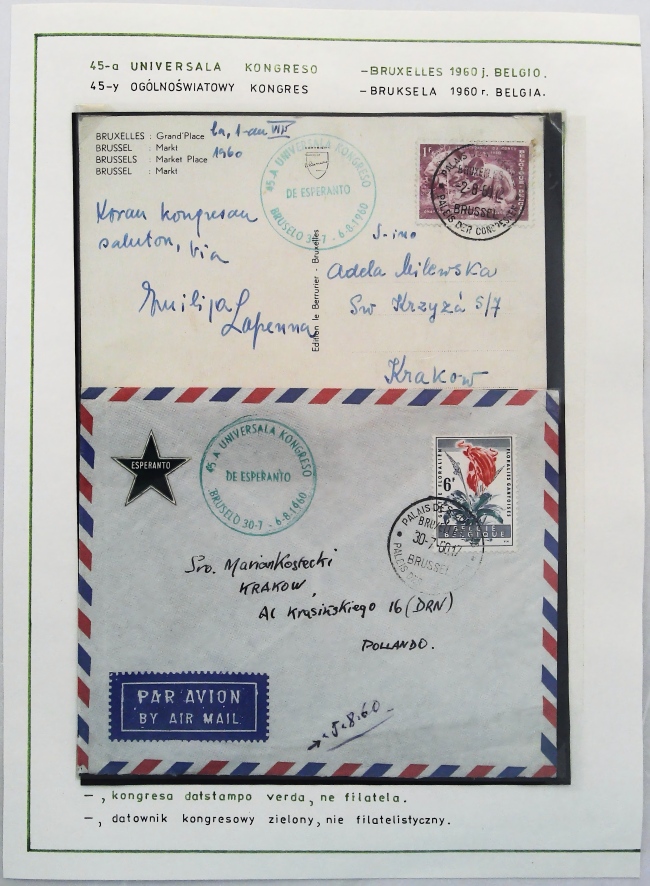 45-a UNIVERSALA KONGRESO -BRUXELLES 1960 j. BELGIO.
45-y OGÓLNOŚWIATOWY KONGRES -BRUKSELA 1960 r. BELGIA.
BRUXELLES : Grand'Place
BRUSSEL : Markt
BRUSSELS : Market Place
BRUSSEL : Markt
la, 1-an VIII
1960
45-A UNIVERSALA KONGRESO
DE ESPERANTO
BRUSELO 30-7 - 6-8-1960
1F
BRUSSEL
PALEIS DER CONGRESSEN
Koran kongresan
saluton, via
Emilija
Lapenna
Edition le Berrurier - Bruxelles
S-ino
Adela Milewska
Św Krzyża 5/7
Krakow
ESPERANTO
45-A UNIVERSALA KONGRESO
DE ESPERANTO
BRUSELO 30-7 - 6-8-1960
FLORALIES GANTOISES
6F
BELGIE
BELGIQUE
PALAIS DE
30-7-60
BRUSSEL
PALEIS DER
Sro. Marian Kostecki
KRAKOW,
Al Krasińskiego 16 (DRN)
POLLANDO.
PAR AVION
BY AIR MAIL
5.8.60
-, kongresa datstampo verda, ne filatela.
-, datownik kongresowy zielony, nie filatelistyczny.